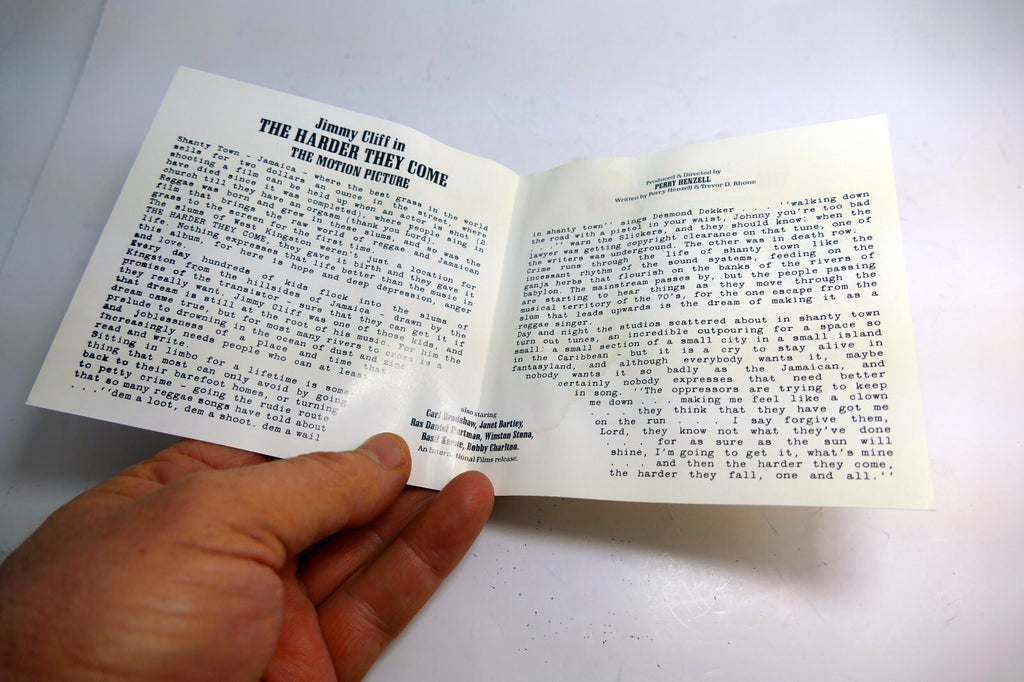 Jimmy Cliff in
THE HARDER THEY COME
THE MOTION PICTURE
Shanty Town - Jamaica - where the best grass in the world
sells for two dollars an ounce in the street, where
shooting a film can be held up when an actor is shot (2
have died since it was completed), where people sing in
church till they have an orgasm (thank you Lord).
Reggae was born and grew in these slums and so was the
film that brings the raw world of reggae and Jamaican
grass to the screen for the first time.
The slums of West Kingston weren't just a location for
THE HARDER THEY COME, they gave it birth and they gave it
life. Nothing expresses that life better than the music in
this album, for here is hope and deep depression, anger
and love.
Every day hundreds of kids flock into the slums of
Kingston from the hillsides of Jamaica - drawn by the
promise of the transistor - sure that they can get it if
they really want. Jimmy Cliff was one of those kids, and
that dream is still at the root of his music. For him the
dream came true, but for most, many rivers to cross is a
prelude to drowning in the ocean of dust and zinc
and joblessness of a place and time that
increasingly needs people who can at least
read and write.
Sitting in limbo for a lifetime is some
thing that most can only avoid by going
back to their barefoot homes, or turning
to petty crime - going the rudie route
that so many reggae songs have told about
. . .''dem a loot, dem a shoot, dem a wail
also starring
Carl Bradshaw, Janet Bartley,
Ras Daniel Hartman, Winston Stona,
Basil Keane, Bobby Charlton.
An International Films release.
Produced & Directed by
PERRY HENZELL
Written by Perry Henzell & Trevor D. Rhone
in shanty town'' sings Desmond Dekker . . . . ''walking down
the road with a pistol in your waist, Johnny you're too bad
. . .'' warn the Slickers, and they should know: when the
lawyer was getting copyright clearance on that tune, one of
the writers was underground. The other was in death row.
Crime runs through the life of shanty town like the
incessant rhythm of the sound systems, feeding on the
ganja herbs that flourish on the banks of the rivers of
babylon. The mainstream passes by, but the people passing
are starting to hear things as they move through the
musical territory of the 70's, for the one escape from the
slum that leads upwards is the dream of making it as a
reggae singer.
Day and night the studios scattered about in shanty town
turn out tunes, an incredible outpouring for a space so
small: a small section of a small city in a small island
in the Caribbean - but it is a cry to stay alive in
fantasyland, and although everybody wants it, maybe
nobody wants it so badly as the Jamaican, and
certainly nobody expresses that need better
in song. ''The oppressors are trying to keep
me down . . . making me feel like a clown
. . . they think that they have got me
on the run . . . . I say forgive them,
Lord, they know not what they've done
. . . . for as sure as the sun will
shine, I'm going to get it, what's mine
. . . . and then the harder they come,
the harder they fall, one and all.''